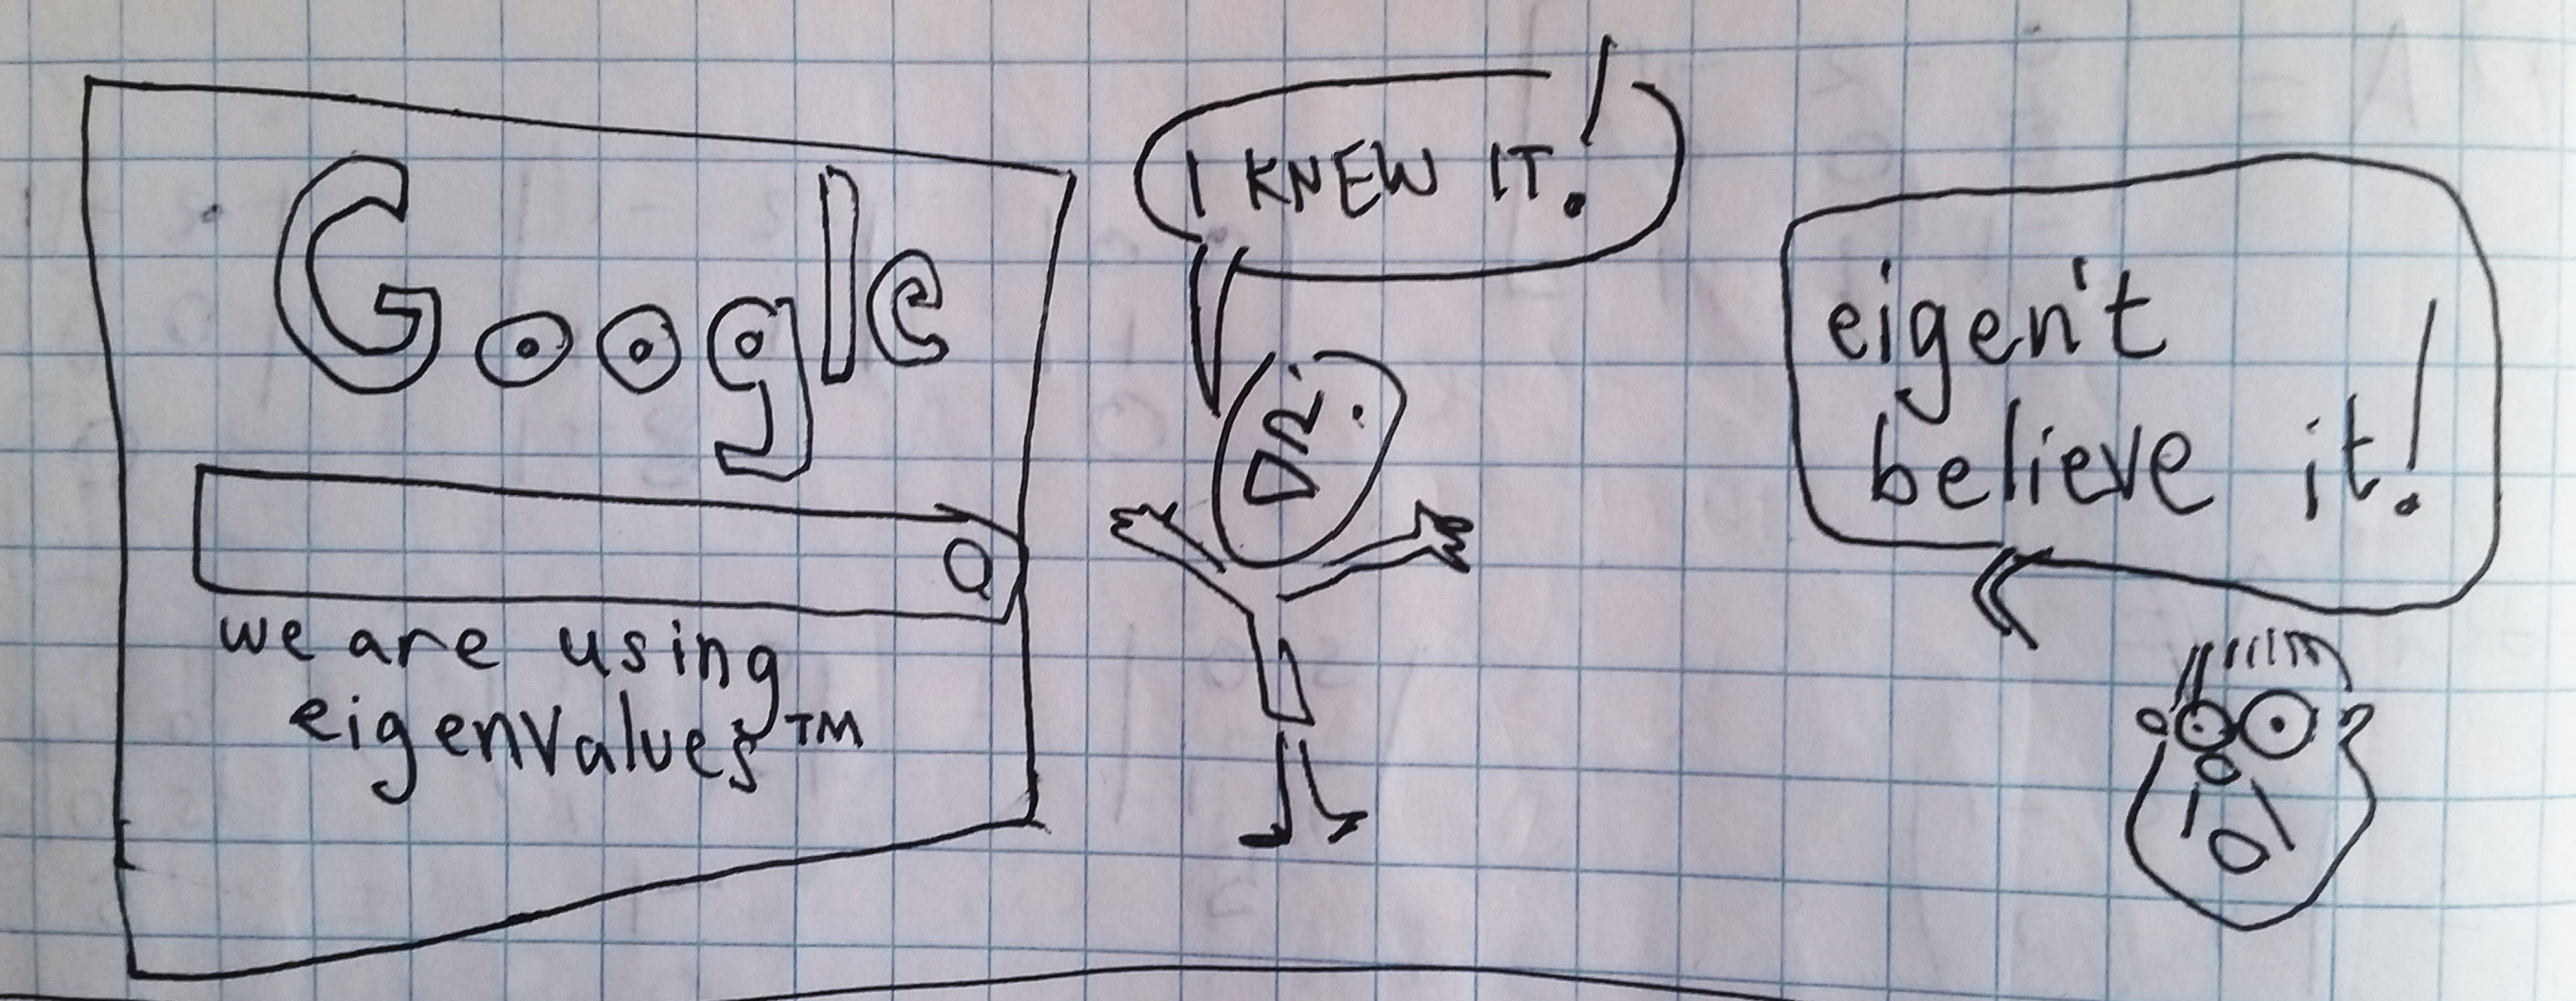 Google
we are using
eigenvalues™
I KNEW IT!
eigen't
believe it!